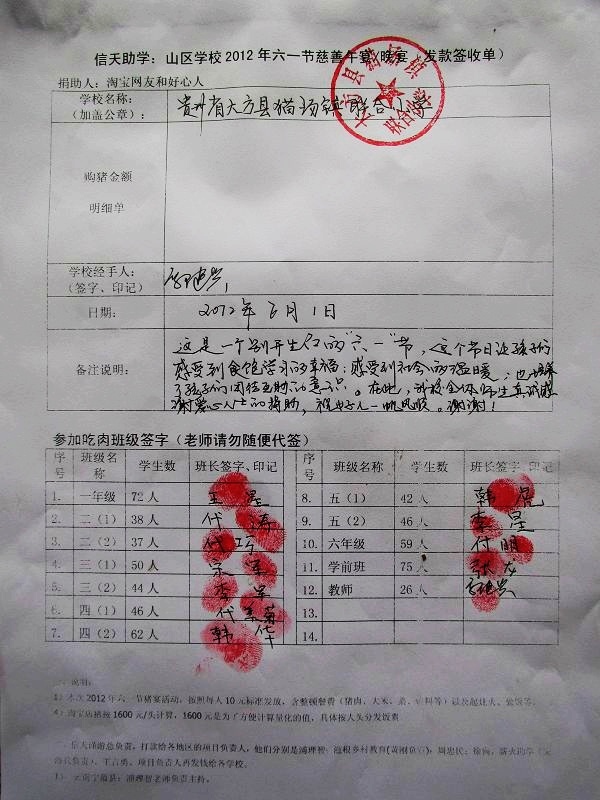 信天助学：山区学校2012年六一节慈善午宴(晚宴)发款签收单)
捐助人：淘宝网友和好心人
学校名称：
（加盖公章）：
贵州省大方县猫场镇联合小学
购猪金额
明细单
学校经手人：
（签字、印记）
日期：
2012年6月1日
备注说明：
这是一个别开生面的"六一"节，这个节日让孩子们
感受到食饱学习的幸福；感受到社会的温暖；也培养
了孩子们团结互助的意识。在此，我校全体师生真诚感
谢爱心人士的捐助，祝好人一帆风顺。谢谢！
参加吃肉班级签字（老师请勿随便代签）
序号 班级名称 学生数 班长签字、印记 序号 班级名称 学生数 班长签字、印记
1. 一年级 72人 王星 8. 五（1） 42人 韩
2. 二（1） 38人 代涛 9. 五（2） 46人 李星
3. 二（2） 37人 代巧 10. 六年级 59人 付明
4. 三（1） 50人 宋 11. 学前班 75人 张龙
5. 三（2） 44人 李 12. 教师 26人
6. 四（1） 46人 代菊 13.
7. 四（2） 62人 韩华 14.
说明：
本次2012年六一节猪宴活动，按照每人10元标准发放，含整顿餐费（猪肉、大米、菜、等）以及赶灶火、公饭等。
4）淘宝店猪按1600元/头计算，1600元是为了方便计算量化的值，具体按人头分发饭素
负责，打款给各地区的项目负责人，他们分别是
负责人）、王吉勇。项目负责人再发钱给各学校。
老师负责主持。